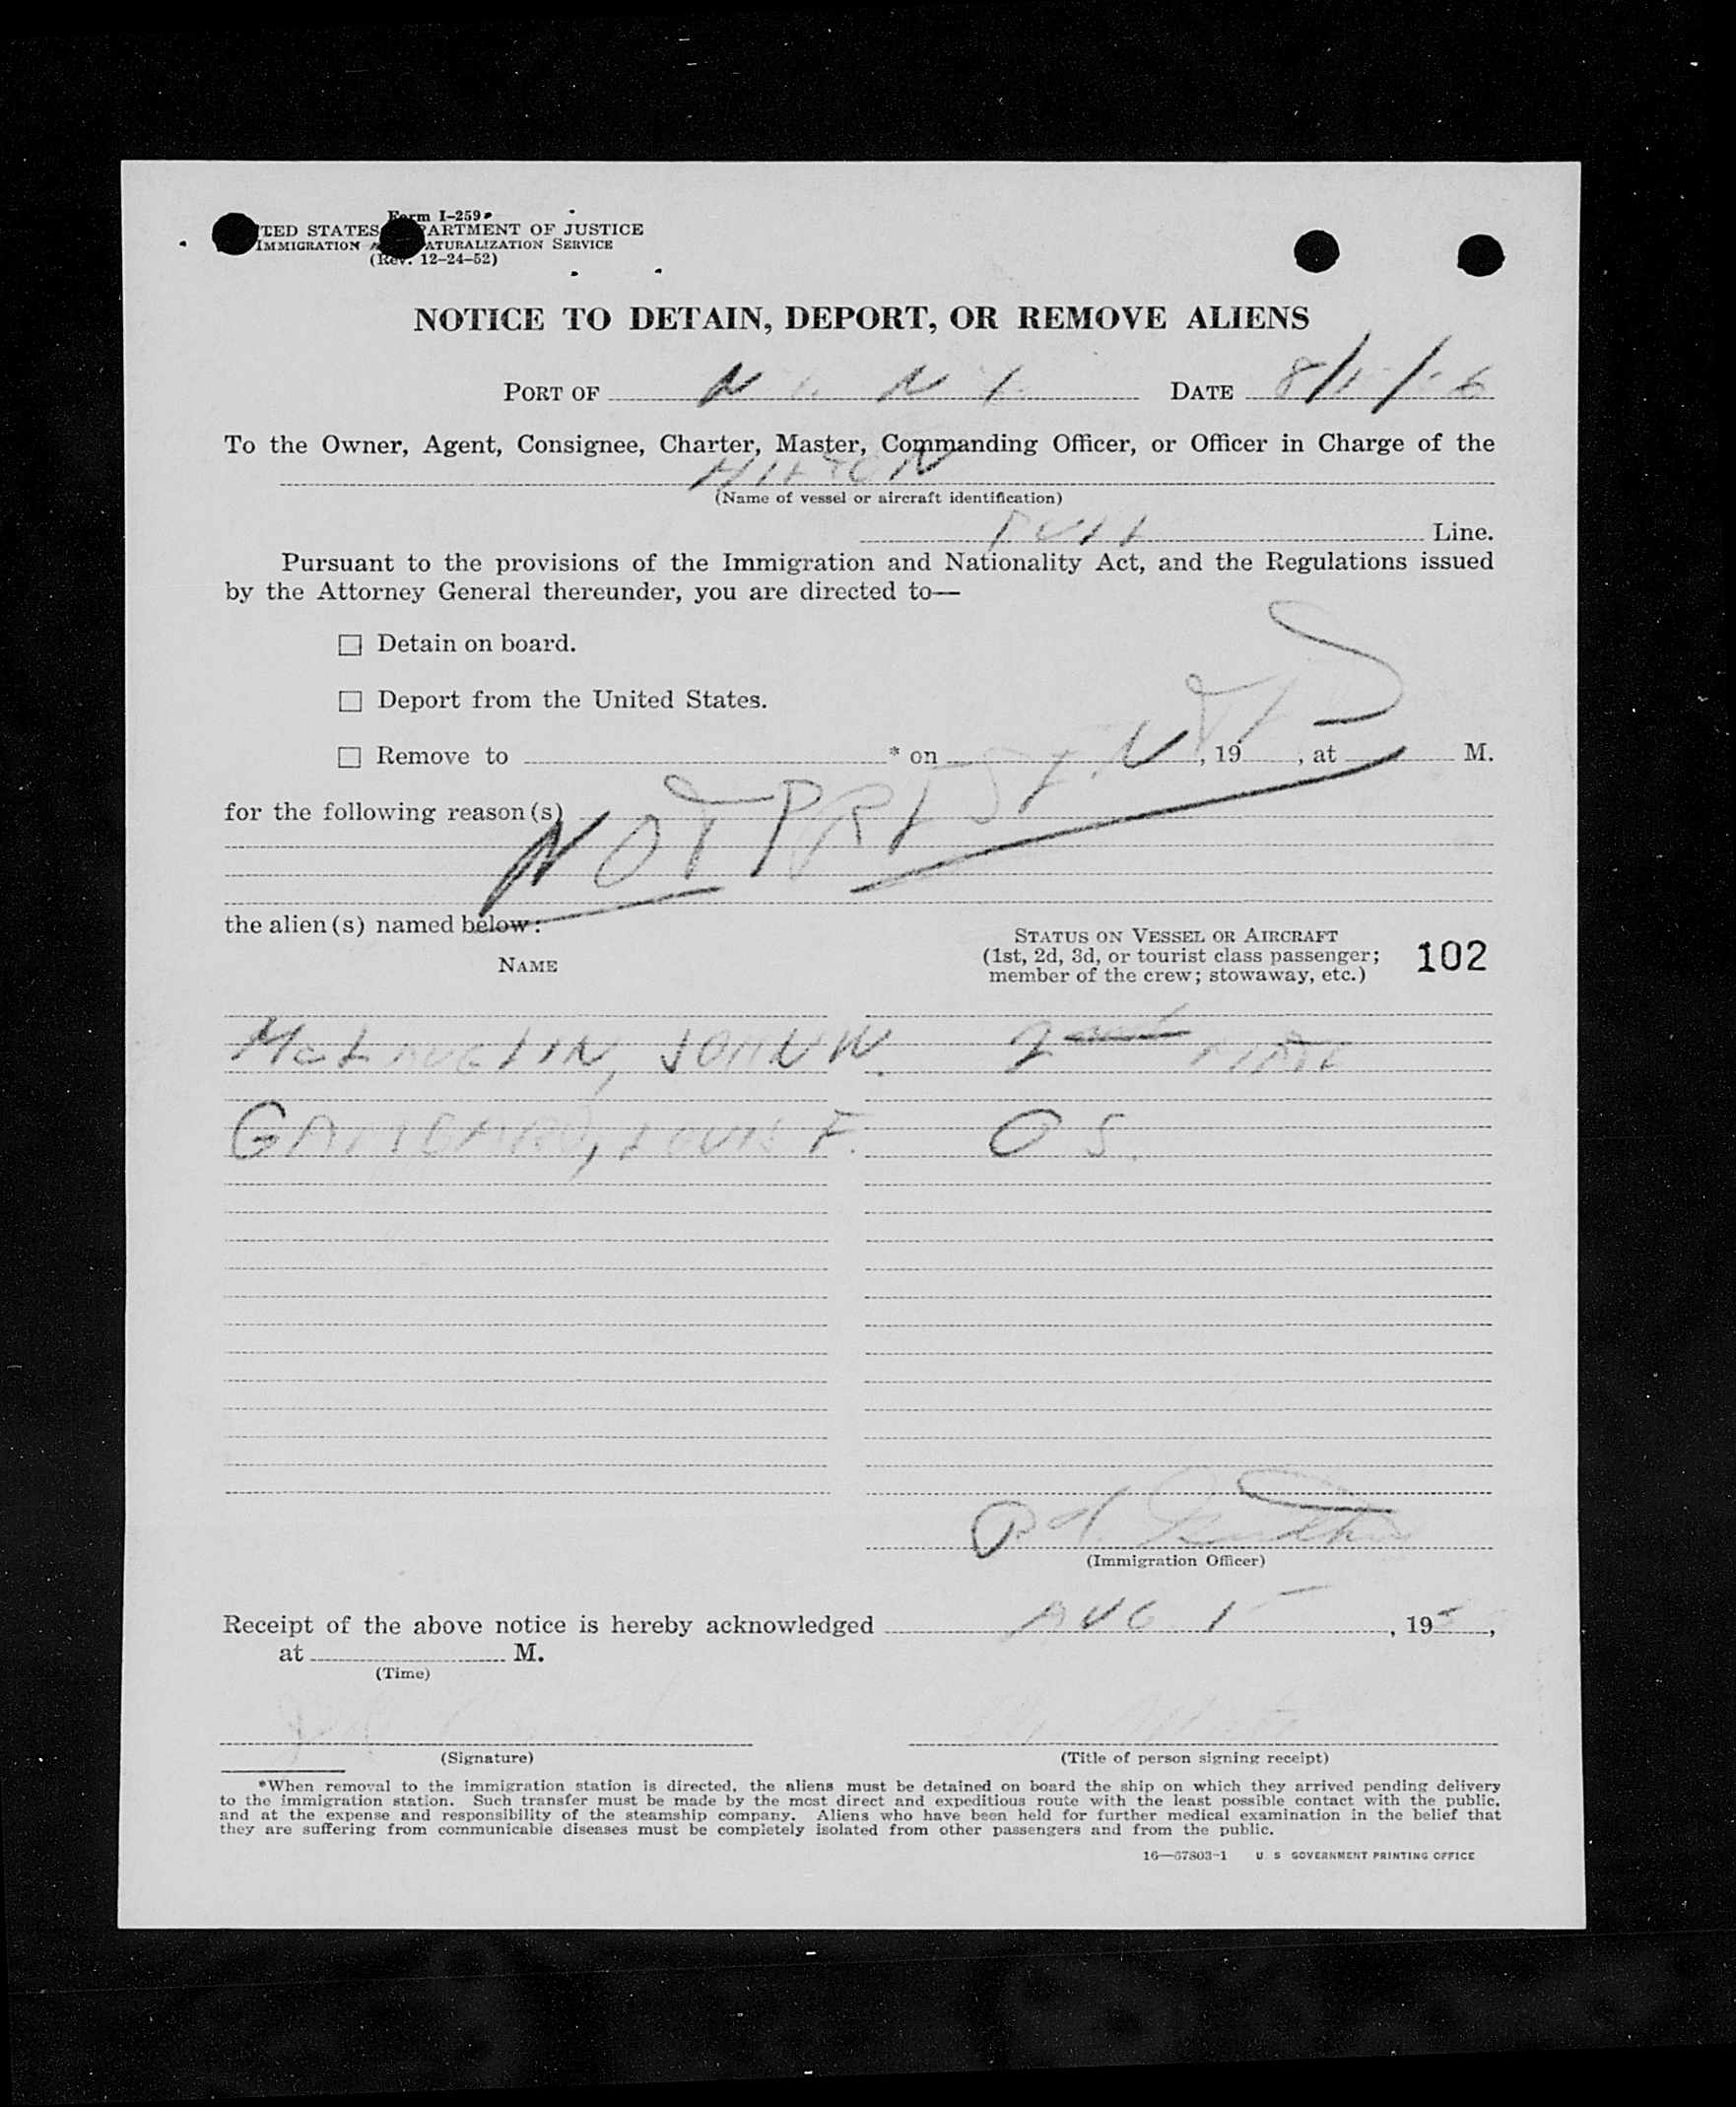 Form I-259
UNITED STATES DEPARTMENT OF JUSTICE
IMMIGRATION AND NATURALIZATION SERVICE
(Rev. 12-24-52)
NOTICE TO DETAIN, DEPORT, OR REMOVE ALIENS
PORT OF N.Y. N.Y. DATE
To the Owner, Agent, Consignee, Charter, Master, Commanding Officer, or Officer in Charge of the
(Name of vessel or aircraft identification)
Line.
Pursuant to the provisions of the Immigration and Nationality Act, and the Regulations issued
by the Attorney General thereunder, you are directed to—
Detain on board.
Deport from the United States.
Remove to * on , 19 , at M.
for the following reason(s)
NOT PRESENTED
the alien(s) named below:
NAME
STATUS ON VESSEL OR AIRCRAFT
(1st, 2d, 3d, or tourist class passenger;
member of the crew; stowaway, etc.)
102
McLAUGLIN, JOHN W. 2nd MATE
LOUIS F. O.S.
(Immigration Officer)
Receipt of the above notice is hereby acknowledged AUG , 195
at M.
(Time)
(Signature)
(Title of person signing receipt)
*When removal to the immigration station is directed, the aliens must be detained on board the ship on which they arrived pending delivery
to the immigration station. Such transfer must be made by the most direct and expeditious route with the least possible contact with the public,
and at the expense and responsibility of the steamship company. Aliens who have been held for further medical examination in the belief that
they are suffering from communicable diseases must be completely isolated from other passengers and from the public.
16—67803-1 U. S. GOVERNMENT PRINTING OFFICE